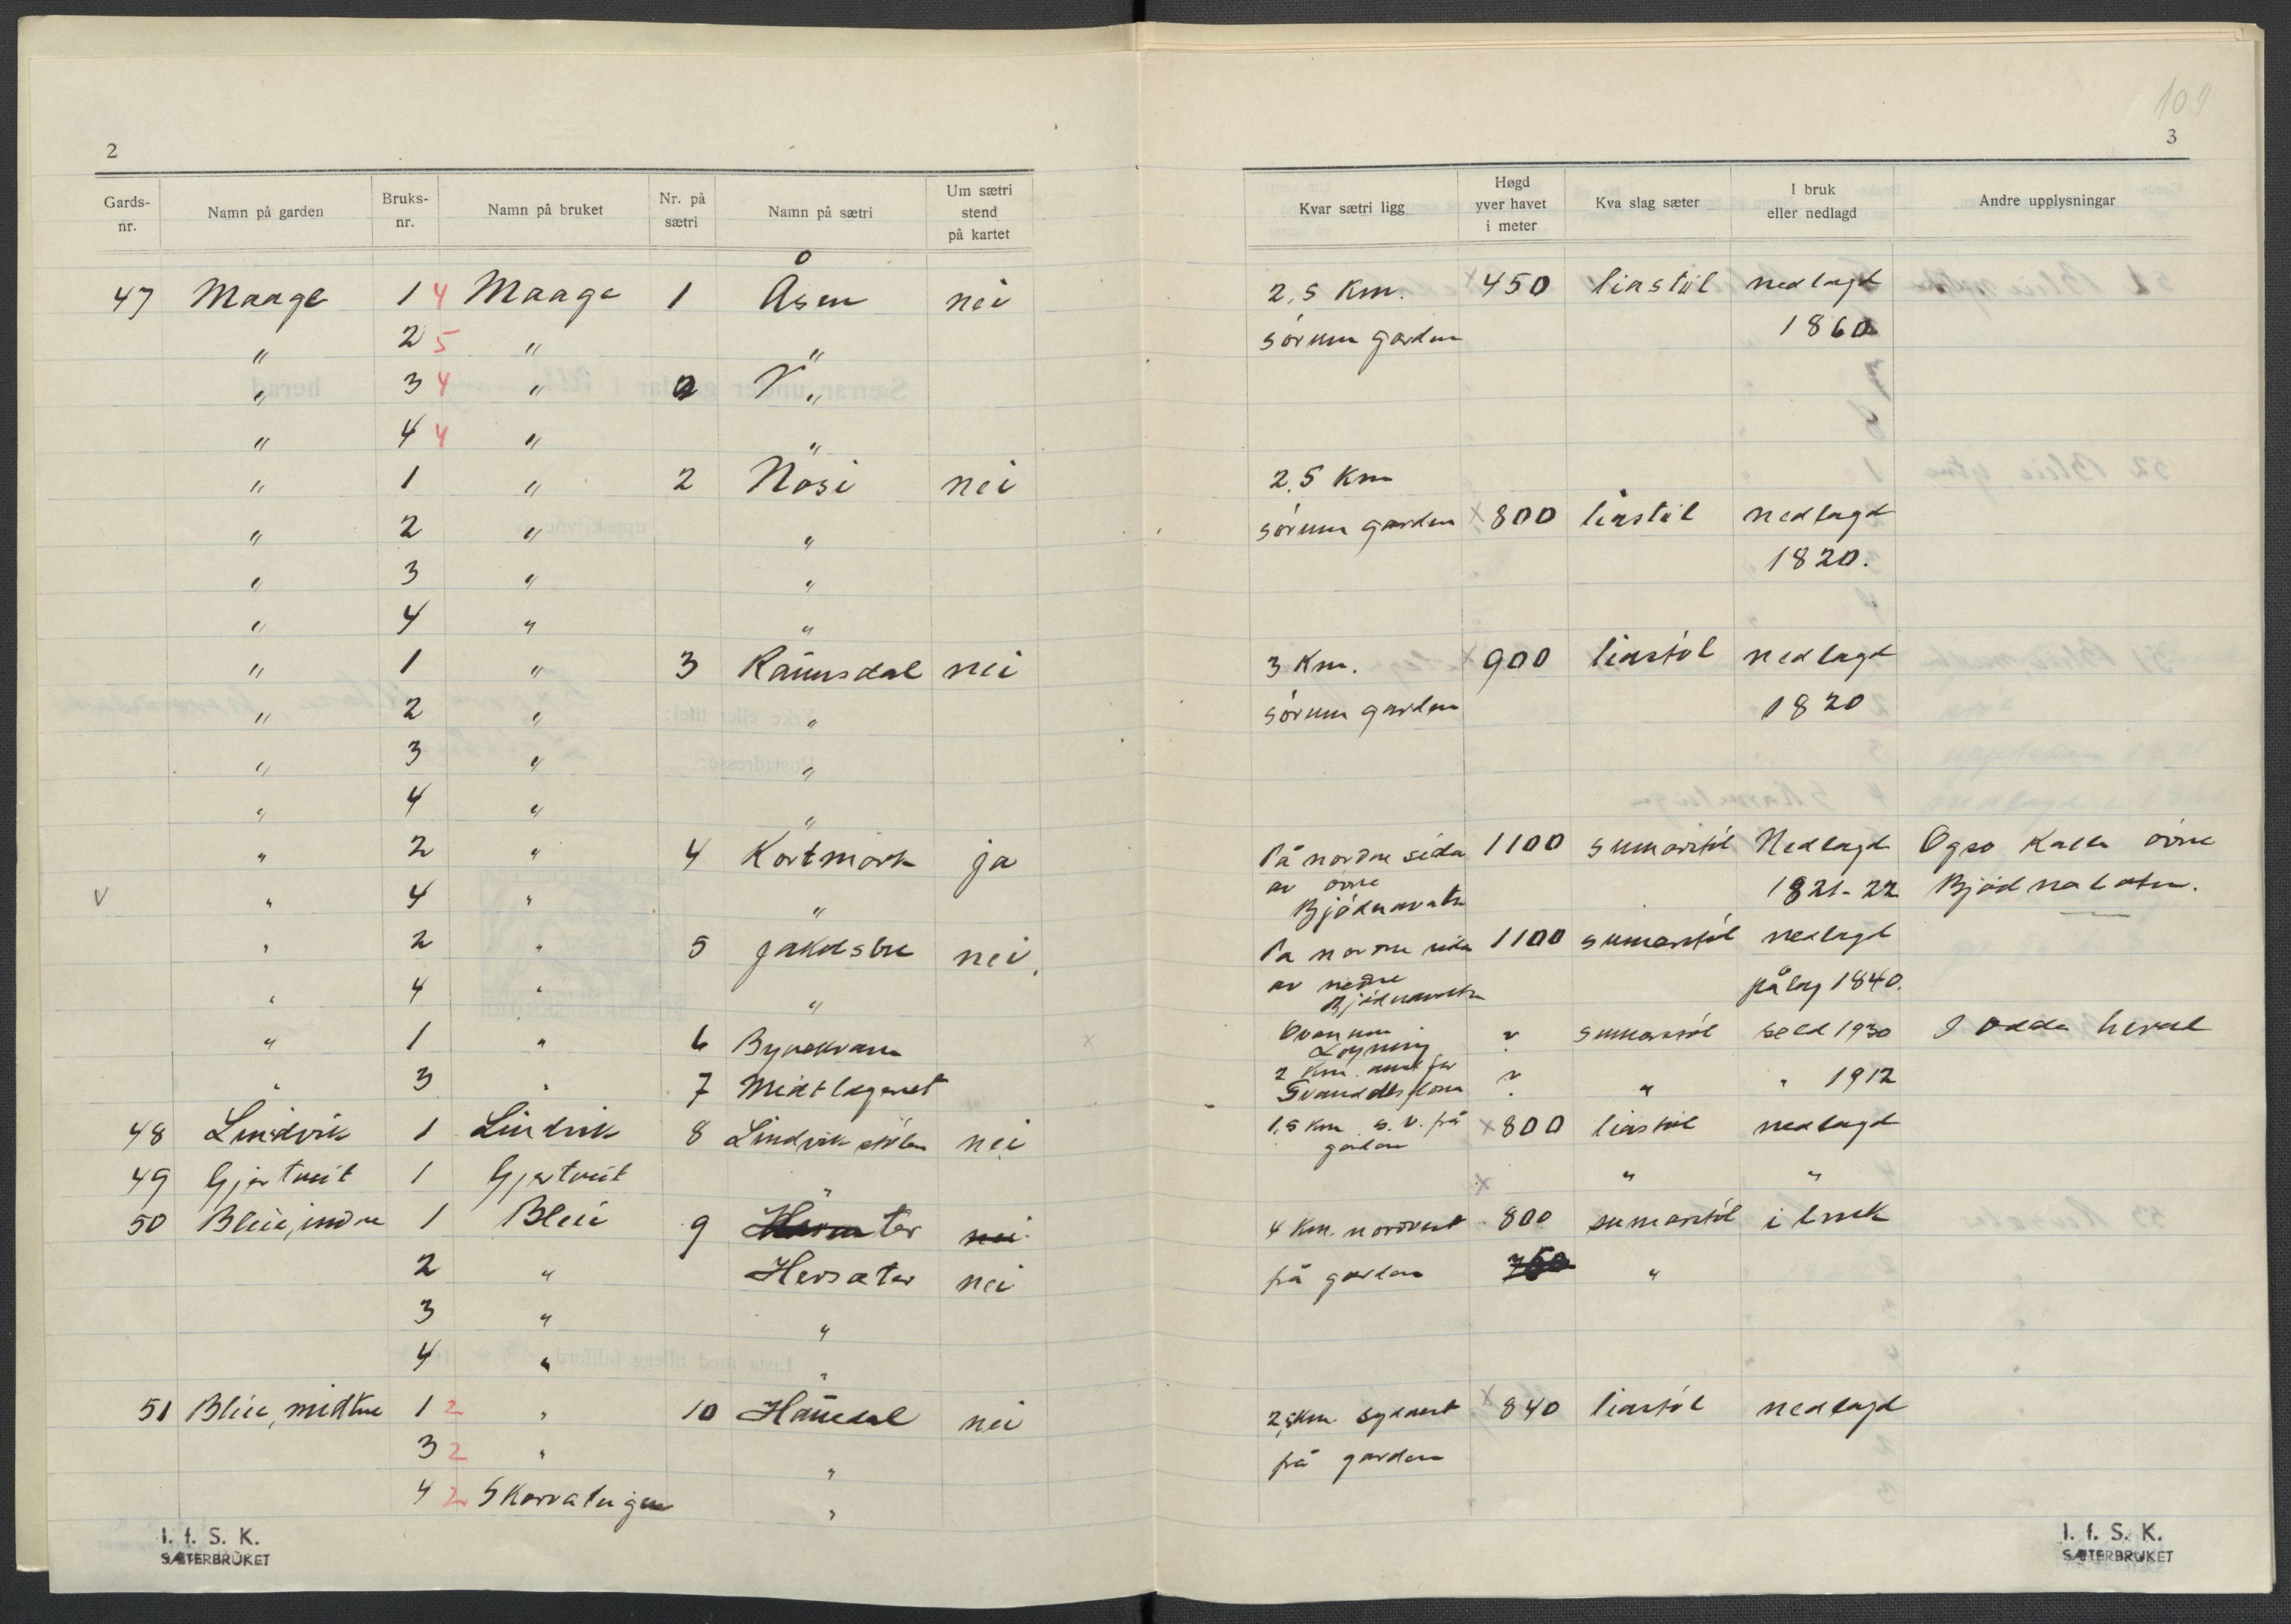 2
Gards-nr. Namn på garden Bruks-nr. Namn på bruket Nr. på sætri Namn på sætri Um sætri stend på kartet
47 Maage 1 4 Maage 1 Åsen nei
" 2 5 " "
" 3 4 " "
" 4 4 " "
" 1 " 2 Nosi nei
" 2 " "
" 3 " "
" 4 " "
" 1 " 3 nei
" 2 " "
" 3 " "
" 4 " "
" 2 " 4 Kortmork ja
V " 4 " "
" 2 " 5 nei
" 4 " "
" 1 " 6
" 3 " 7 Midtlageret
48 Lindvik 1 Lindvik 8 Lindvikstölen nei
49 Gjertveit 1 Gjertveit "
50 Bleie, indre 1 Bleie 9 nei
2 " Hersæter nei
3 " "
4 " "
51 Bleie, midtre 1 2 " 10 nei
3 2 " "
4 2 "
I. f. S. K.
SÆTERBRUKET
101
3
Kvar sætri ligg Høgd yver havet i meter Kva slag sæter I bruk eller nedlagd Andre upplysningar
2,5 Km. 450 liastöl nedlagd
sörum garden 1860
2,5 Km
sörum garden x 800 liastöl nedlagd
1820.
3 Km. x 900 liastöl nedlagd
sörum garden 1820
På nordre sida 1100 sumarstöl Nedlagd Ogso Kalla övre
av övre 1821-22
På nordre sida 1100 sumarstöl nedlagd
av nedre pålag 1840.
Ovanum ? sumarstöl seld 1930 I Odda herad
Löyning
2 Km. ? " " 1912
1,5 Km s. v. frå x 800 liastöl nedlagd
garden
x " "
4 Km. nordvest 800 sumarstöl i bruk
frå garden 750 "
2,5 Km. sydvest x 840 liastöl nedlagd
frå garden
I. f. S. K.
SÆTERBRUKET